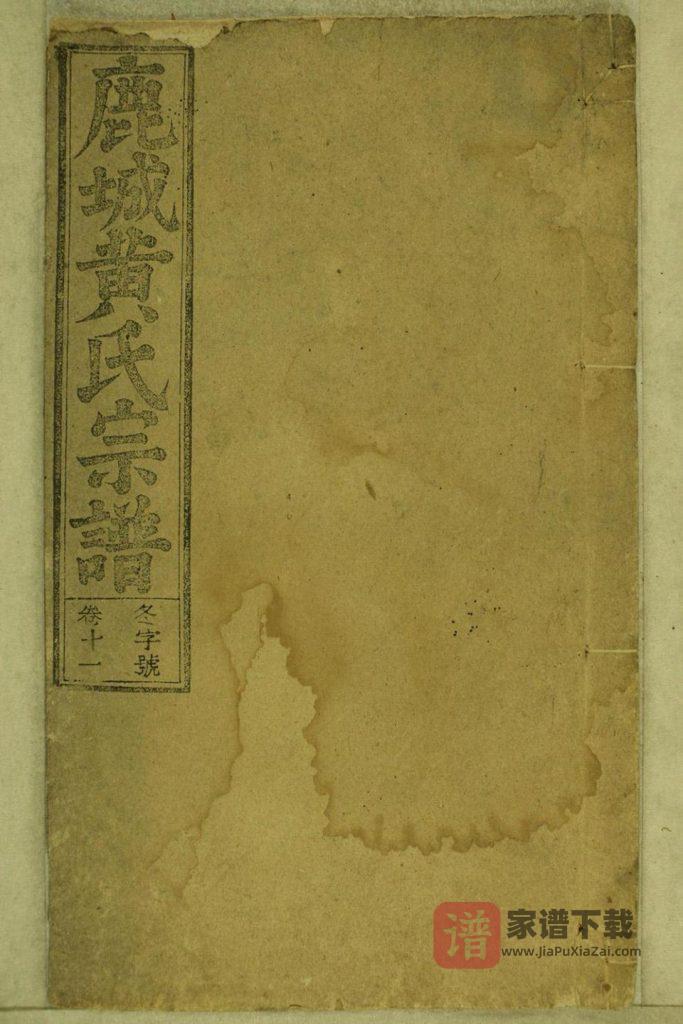 鹿城黃氏宗譜
冬字號
卷十一
谱
家谱下载
www.JiaPuXiaZai.com